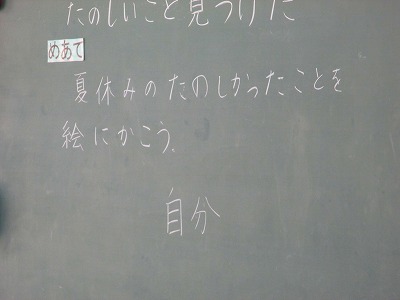 たのしいこと見つけた
めあて
夏休みのたのしかったことを
絵にかこう。
自分